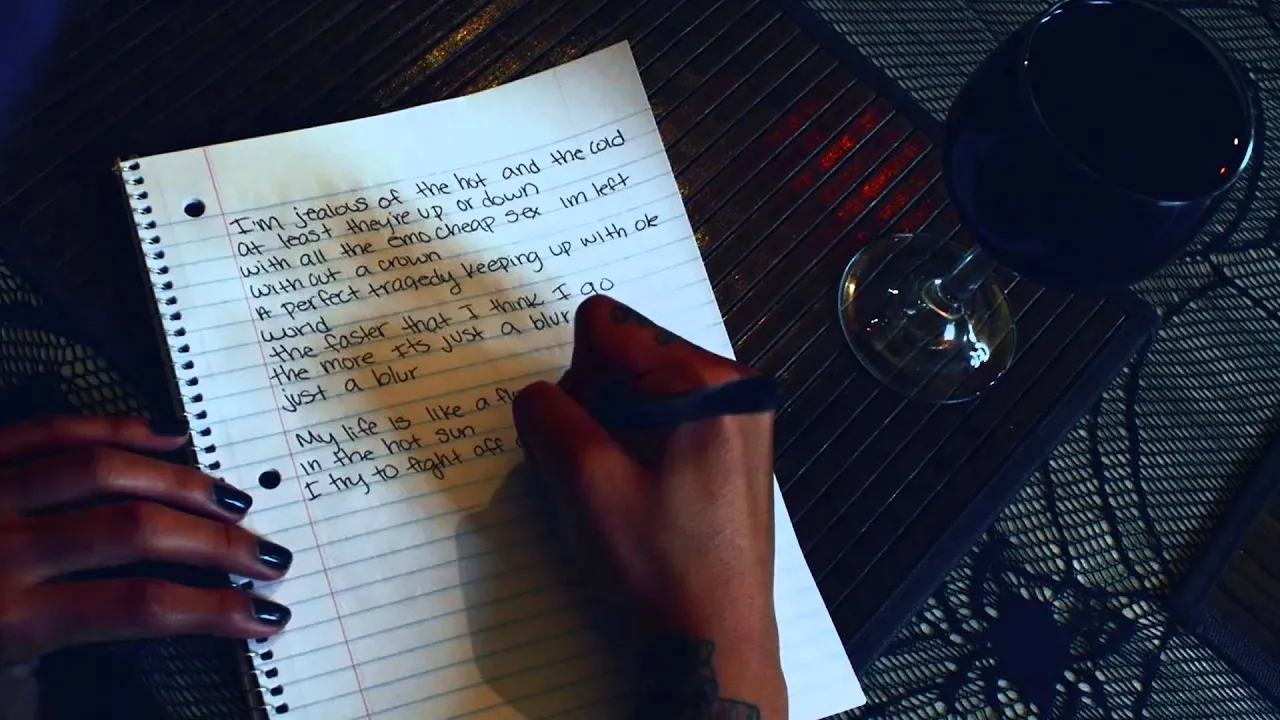 I'm jealous of the hot and the cold
at least they're up or down
with all the emo cheap sex im left
with out a crown
A perfect tragedy keeping up with ole
wurld
the faster that I think I go
the more its just a blur
just a blur
My life is like a
in the hot sun
I try to fight off